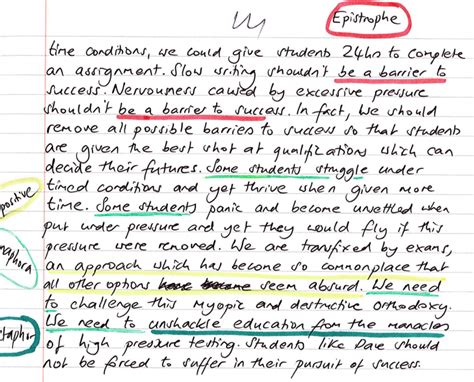 Epistrophe
time conditions, we could give students 24hrs to complete
an assignment. Slow writing shouldn't be a barrier to
success. Nervousness caused by excessive pressure
shouldn't be a barrier to success. In fact, we should
remove all possible barriers to success so that students
are given the best shot at qualifications which can
decide their futures. Some students struggle under
timed conditions and yet thrive when given more
time. Some students panic and become unsettled when
put under pressure and yet they would fly if this
pressure were removed. We are transfixed by exams,
an approach which has become so commonplace that
all other options have become seem absurd. We need
to challenge this myopic and destructive orthodoxy.
We need to unshackle education from the manacles
of high pressure testing. Students like Dave should
not be forced to suffer in their pursuit of success.
positive
naphora
etaphor